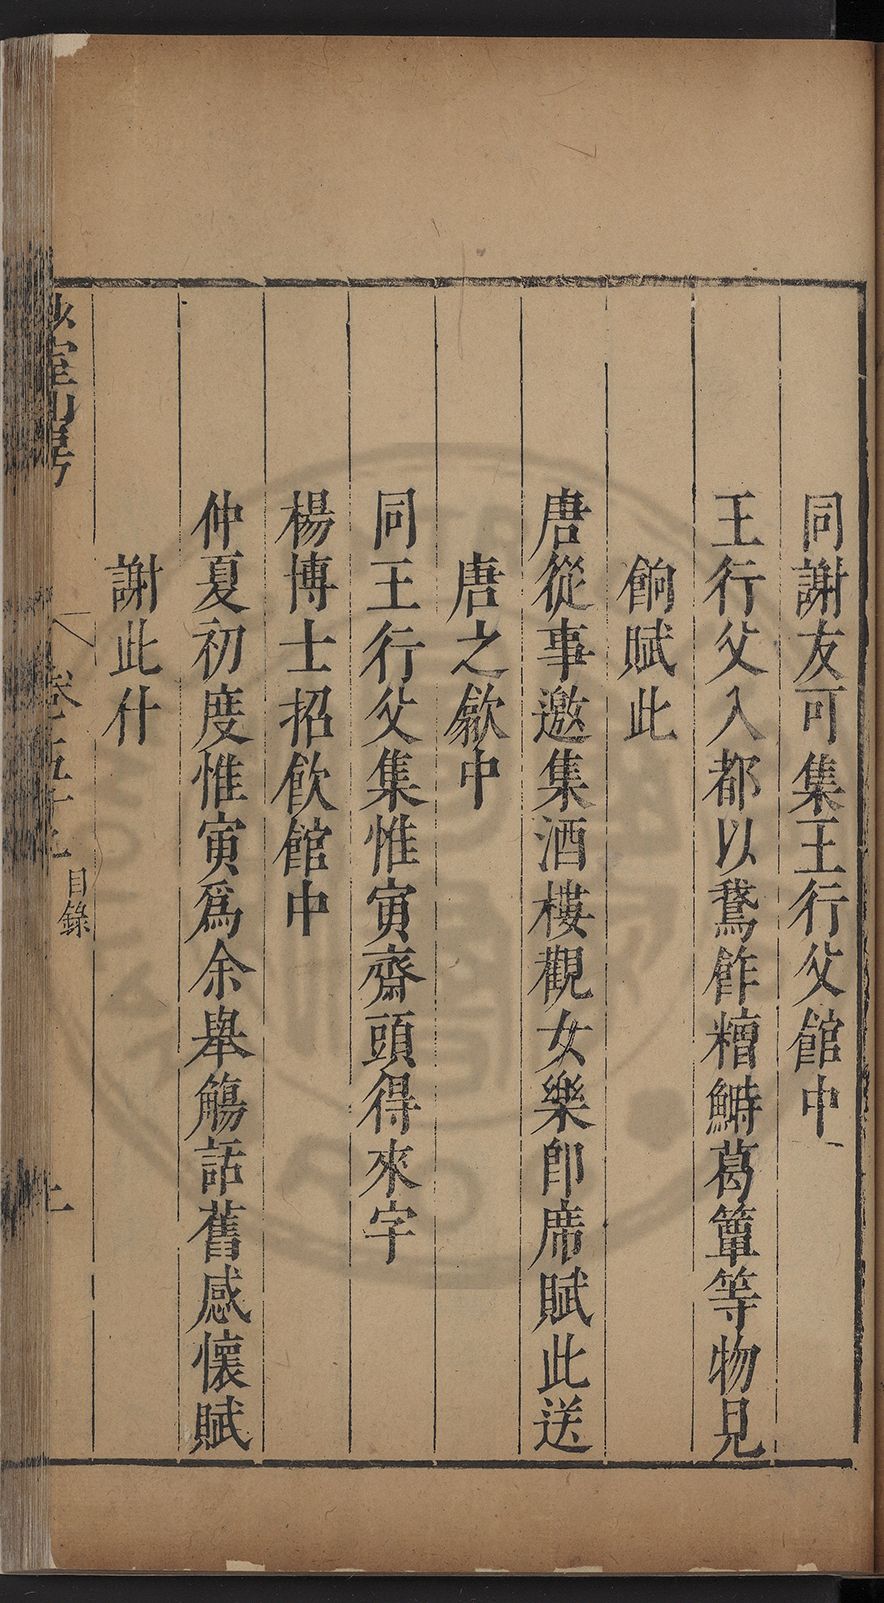 同謝友可集王行父館中
王行父入都以鵞鮓糟鰣葛簟等物見
餉賦此
唐從事邀集酒樓觀女樂即席賦此送
唐之歙中
同王行父集惟寅齋頭得來字
楊博士招飲館中
仲夏初度惟寅爲余舉觴話舊感懷賦
謝此什
室山房
目錄
上